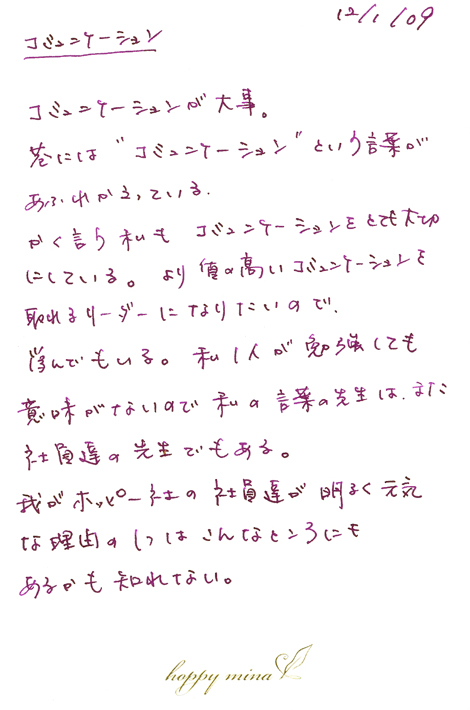 12/1/09
コミュニケーション
コミュニケーションが大事。
巷には“コミュニケーション”という言葉が
あふれかえっている.
かく言う私も コミュニケーションをとても大切
にしている。より質の高いコミュニケーションを
取れるリーダーになりたいので、
学んでもいる。私1人が勉強しても
意味がないので私の言葉の先生は、また
社員達の先生でもある。
我がホッピー社の社員達が明るく元気
な理由の1つはこんなところにも
あるかも知れない。
hoppy mina